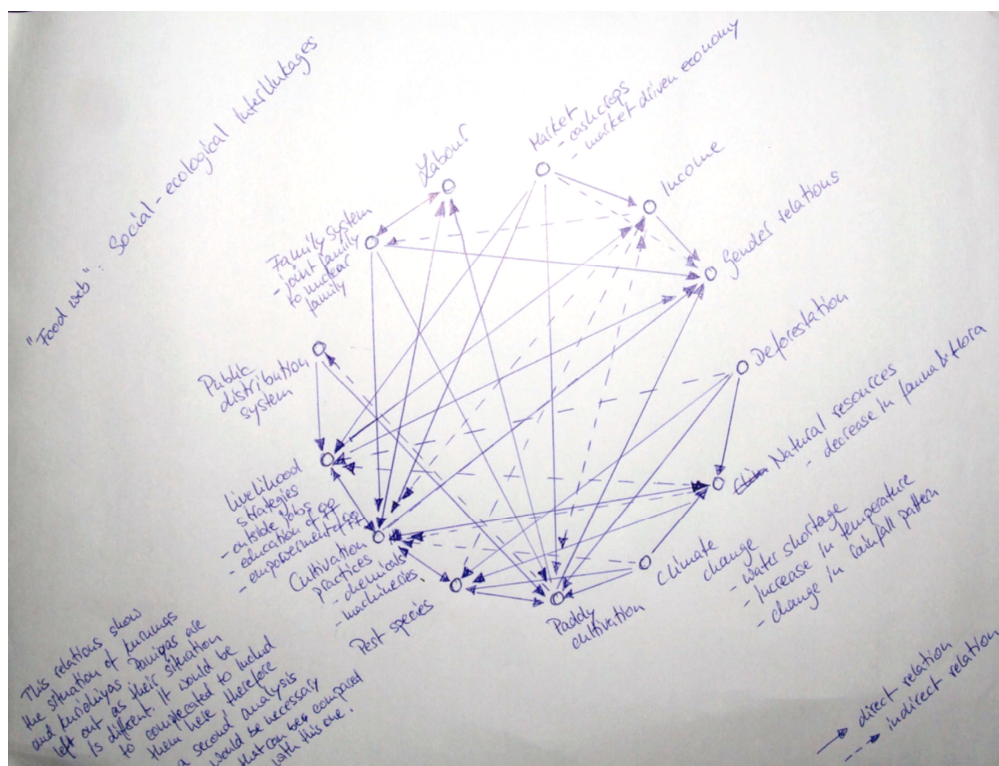 "Food web": Social-ecological Interlinkages
Labour
Market
- cash crops
- market driven economy
Income
Gender relations
Deforestation
Natural resources
- decrease in fauna & flora
Climate
change
- water shortage
- Increase in temperature
- change in rainfall pattern
Paddy
cultivation
Pest species
Cultivation
practices
- chemicals
- machineries
Livelihood
strategies
- outside jobs
- education of
- empowerment of
Public
distribution
system
Family system
- joint family
to nuclear
family
This relations show
the situation of Kurumas
and Kurichiyas. Paniyas are
left out as their situation
is different, it would be
to complecated to includ
them here, therefore
a second analysis
would be necessary
that can be compared
with this one!
direct relation
indirect relation